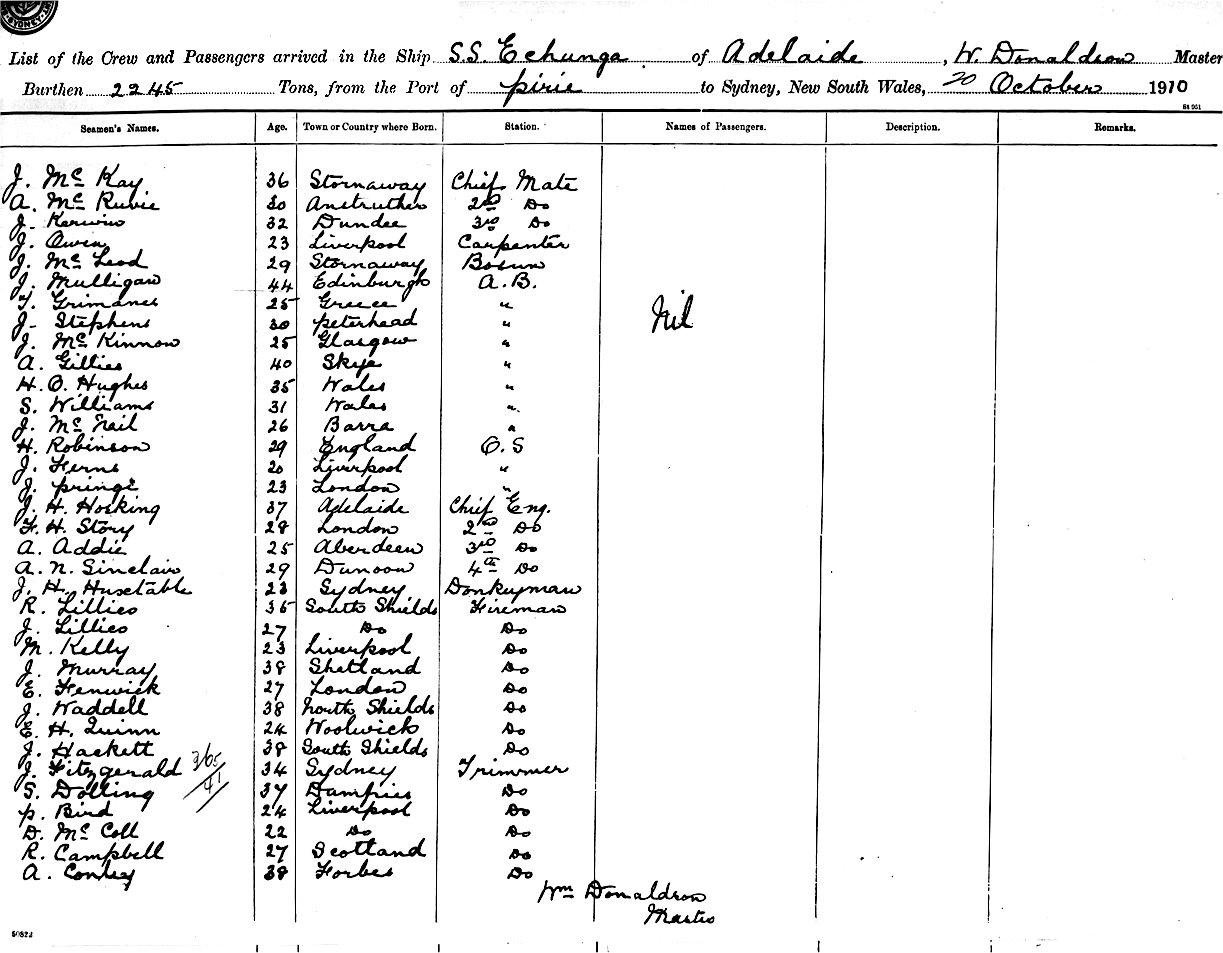 SYDNEY
List of the Crew and Passengers arrived in the Ship S.S. Echunga of Adelaide, W. Donaldson Master
Burthen 2245 Tons, from the Port of pirie to Sydney, New South Wales, 20 October 1910
Seamen's Names. Age. Town or Country where Born. Station. Names of Passengers. Description. Remarks.
J. Mc Kay 36 Stornaway Chief Mate
A. Mc Rubie 30 Anstruther 2nd Do
J. Kerwin 32 Dundee 3rd Do
J. Owen 23 Liverpool Carpenter
J. Mc Leod 29 Stornaway Bosun
J. Mulligan 44 Edinburgh A.B.
T. Grimanes 25 Greece "
J. Stephens 30 peterhead " Nil
J. Mc Kinnon 25 Glasgow "
A. Gillies 40 Skye "
H. O. Hughes 35 Wales "
S. Williams 31 Wales "
J. Mc Neil 26 Barra "
H. Robinson 29 England O.S
J. Ferns 20 Liverpool "
J. pringe 23 London "
J. H. Hosking 37 Adelaide Chief Eng.
F. H. Story 28 London 2nd Do
A. Addie 25 Aberdeen 3rd Do
A. N. Sinclair 29 Dunoon 4th Do
J. H. Huxtable 23 Sydney Donkeyman
R. Lillies 35 South Shields Fireman
J. Lillies 27 Do Do
M. Kelly 23 Liverpool Do
J. Murray 38 Shetland Do
E. Fenwick 27 London Do
J. Waddell 38 North Shields Do
E. H. Quinn 24 Woolwick Do
J. Hackett 38 South Shields Do
J. Fitzgerald 34 Sydney Trimmer
S. Dolling 37 Dampries Do
p. Bird 24 Liverpool Do
D. Mc Coll 22 Do Do
R. Campbell 27 Scotland Do
A. Conley 38 Forbes Do
Wm Donaldson
Master